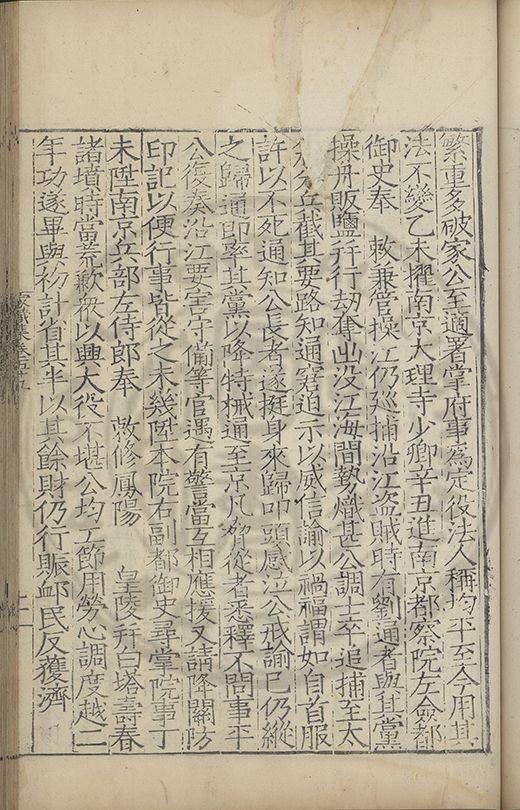 繁重多破家公至適署掌府事為定役法人稱均平至今用其
法不變乙未擢南京大理寺少卿辛丑進南京都察院左僉都
御史奉　敕兼管操江仍廵捕沿江盗賊時有劉通者與其黨
操舟販鹽并行劫奪出没江海間勢熾甚公調士卒追捕至太
分兵截其要路知通窘迫示以威信諭以禍福謂如自首服
許以不死通知公長者遂挺身來歸叩頭感泣公戒諭已仍縱
之歸通即率其黨以降特械通至京凡脅從者悉釋不問事平
公復奏沿江要害守備等官遇有警當互相應援又請降關防
印記以便行事皆從之未幾陞本院右副都御史尋掌院事丁
未陞南京兵部左侍郎奉　敕修鳳陽　皇陵并白塔壽春
諸墳時當荒歉衆以興大役不堪公均工節用勞心調度越二
年功遂畢與初計省其半以其餘財仍行賑䘏民反獲濟